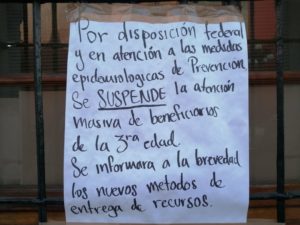 Por disposición federal
y en atención a las medidas
epidemiologicas de Prevención
Se SUSPENDE la atención
masiva de beneficiarios
de la 3ra edad.
Se informara a la brevedad
los nuevos metodos de
entrega de recursos.